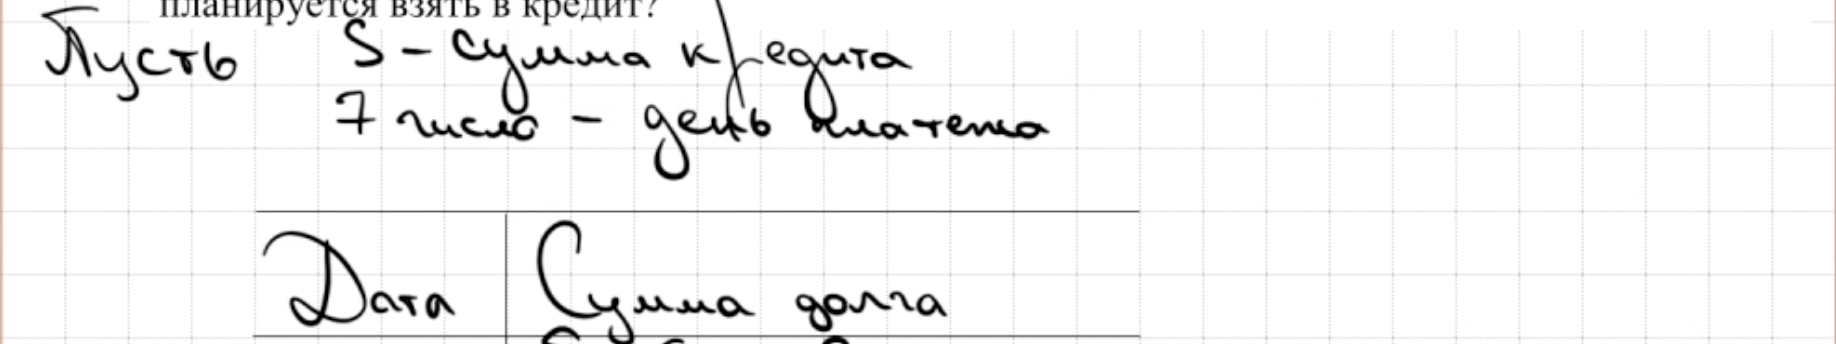 планируется взять в кредит?
Пусть S - сумма кредита
7 число - день платежа
Дата Сумма долга